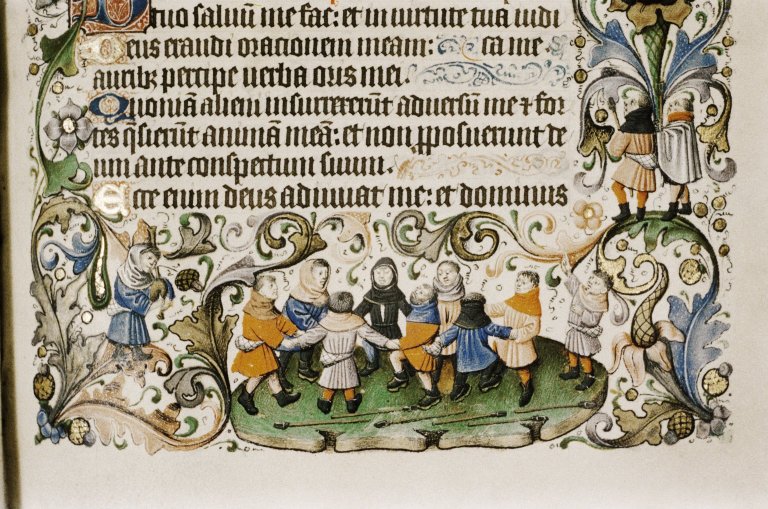 tuo saluū me fac: et in uirtute tua iudi
Deus exaudi oracionem meam: ca me
auribꝫ percipe uerba oris mei.
Quoniā alieni insurrexerūt aduersū me ⁊ for
tes q̄sierūt animā meā: et non ꝓposuerunt de
um ante conspectum suum.
Ecce enim deus adiuuat me: et dominus